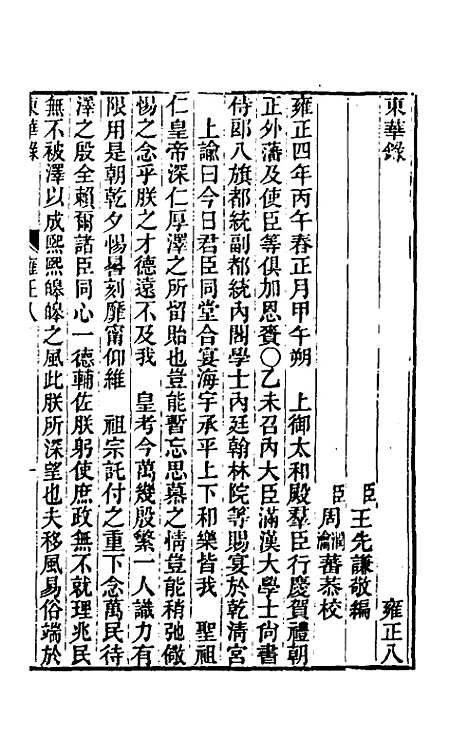 東華錄　雍正八
臣王先謙敬編
臣周瀹蕃　潤蕃恭校
雍正四年丙午春正月甲午朔　上御太和殿羣臣行慶賀禮朝
正外藩及使臣等俱加恩賚〇乙未召內大臣滿漢大學士尙書
侍郎八旗都統副都統內閣學士內廷翰林院等賜宴於乾淸宮
上諭曰今日君臣同堂合宴海宇承平上下和樂皆我　聖祖
仁皇帝深仁厚澤之所留貽也豈能暫忘思慕之情豈能稍弛儆
惕之念乎朕之才德遠不及我　皇考今萬幾殷繁一人識力有
限用是朝乾夕惕晷刻靡甯仰維　祖宗託付之重下念萬民待
澤之殷全賴爾諸臣同心一德輔佐朕躬使庶政無不就理兆民
無不被澤以成熙熙皞皞之風此朕所深望也夫移風易俗端於
東華錄　雍正八　一